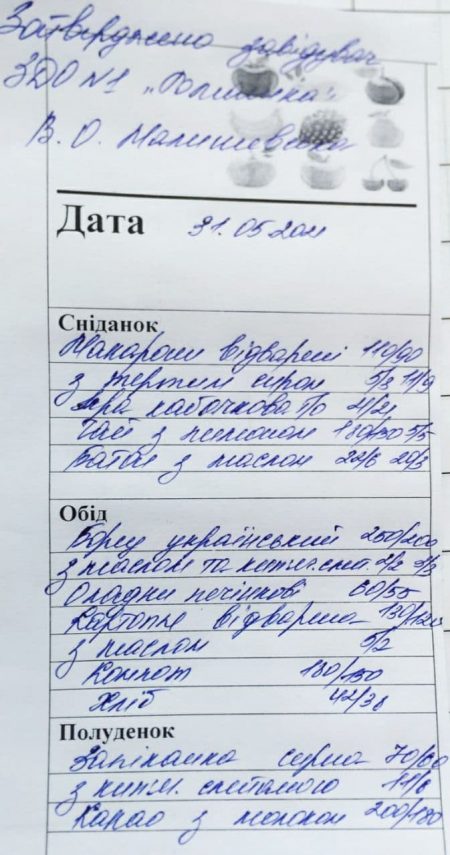 Затверджено завідувач
ЗДО №1 „Ромашка"
В. О. Малишевська
Дата 31.05
Сніданок
Макарони відварені 110/90
з тертим сиром 5/3 11/9
Ікра кабачкова п/о
Чай з лимоном 180/150 5/5
Батон з маслом 22/6 20/3
Обід
Борщ український 250/200
з маслом та кип'яч. смет. 2/2
Оладки печінкові 60/55
Картопля відварена 130/120
з маслом 5/2
Компот 180/150
Хліб 42/36
Полуденок
Запіканка сирна 70/60
з кип'яч. сметаною 11/8
Какао з молоком 200/180